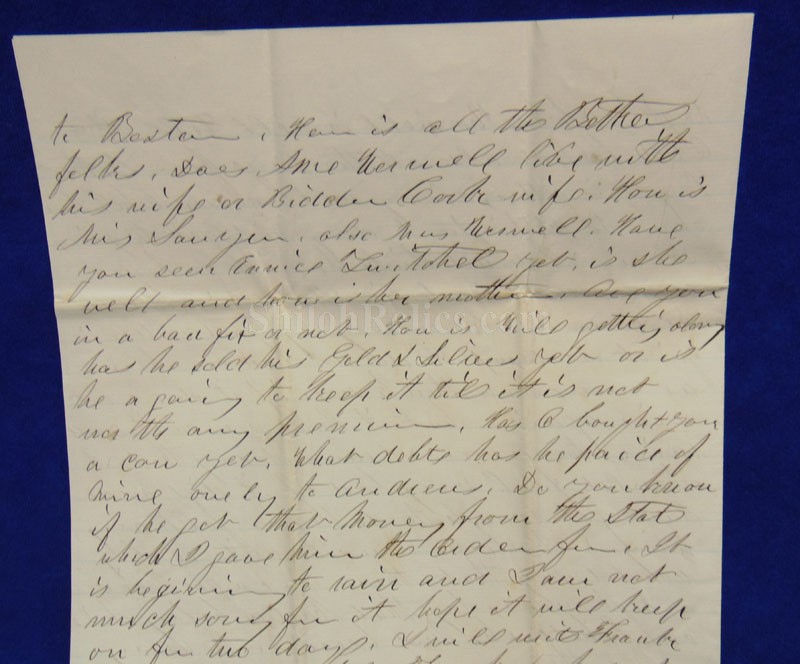 to Boston, How is all the Bethel
folks. Does Ame Wormell live with
his wife or Bidder wife. How is
Mrs Sawyer. also Mrs Wormell. Have
you seen Annice Twitchel yet, is she
well and how is her mother. Are you
in a bad fix or not. How is Will getting along
has he sold his Gold & Silver yet or is
he a going to keep it til it is not
worth any premium. Has C bought you
a cow yet. What debts has he paid of
mine onely to Andrews. Do you know
if he got that Money from the Stat
which I gave him the Order for. It
is begining to rain and I am not
much sorry for it hope it will keep
on for two days. I will write Frank
ShilohRelics.com